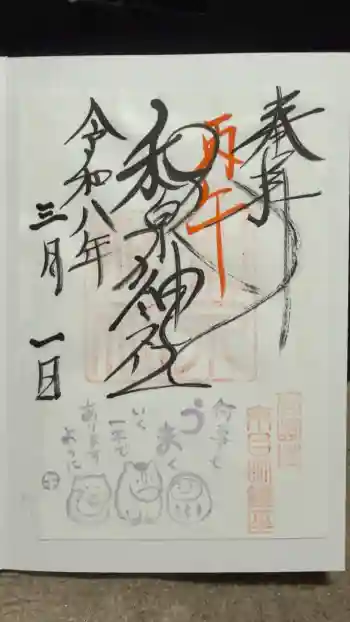 奉拝
丙午
和泉神社
令和八年
三月一日
何事も
うまく
いく
一年で
あります
ように